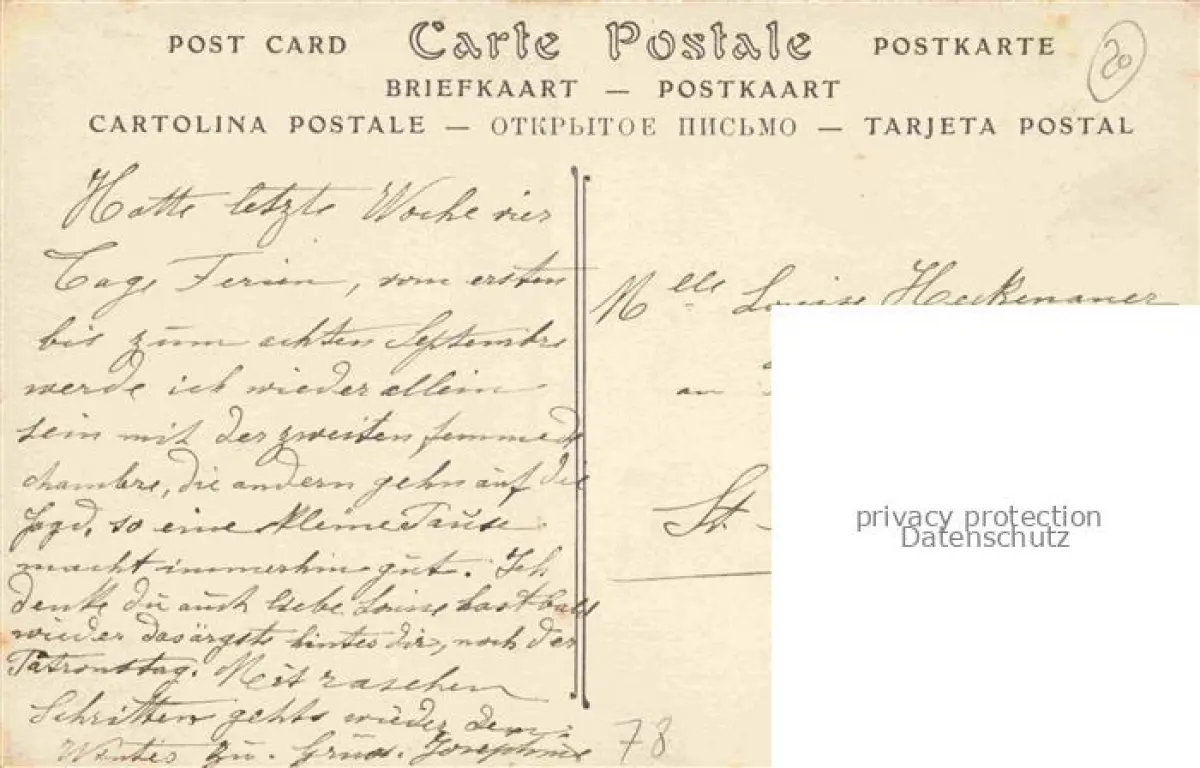 POST CARD Carte Postale POSTKARTE
20
BRIEFKAART — POSTKAART
CARTOLINA POSTALE — ОТКРЫТОЕ ПИСЬМО — TARJETA POSTAL
Hatte letzte Woche vier
Tage Ferien, vom ersten
bis zum achten Septembre
werde ich wieder allein
sein mit der zweiten femme de
chambre, die andern gehn auf die
Jagd, so eine kleine Pause
macht immerhin gut. Ich
denke du auch liebe Louise hast bald
wieder das ärgste hinter dir, noch der
Patronstag. Mit raschen
Schritten gehts wieder dem
Winter zu. Gruss. Josephine
Melle Louise Heckenauer
an
St.
78
privacy protection
Datenschutz